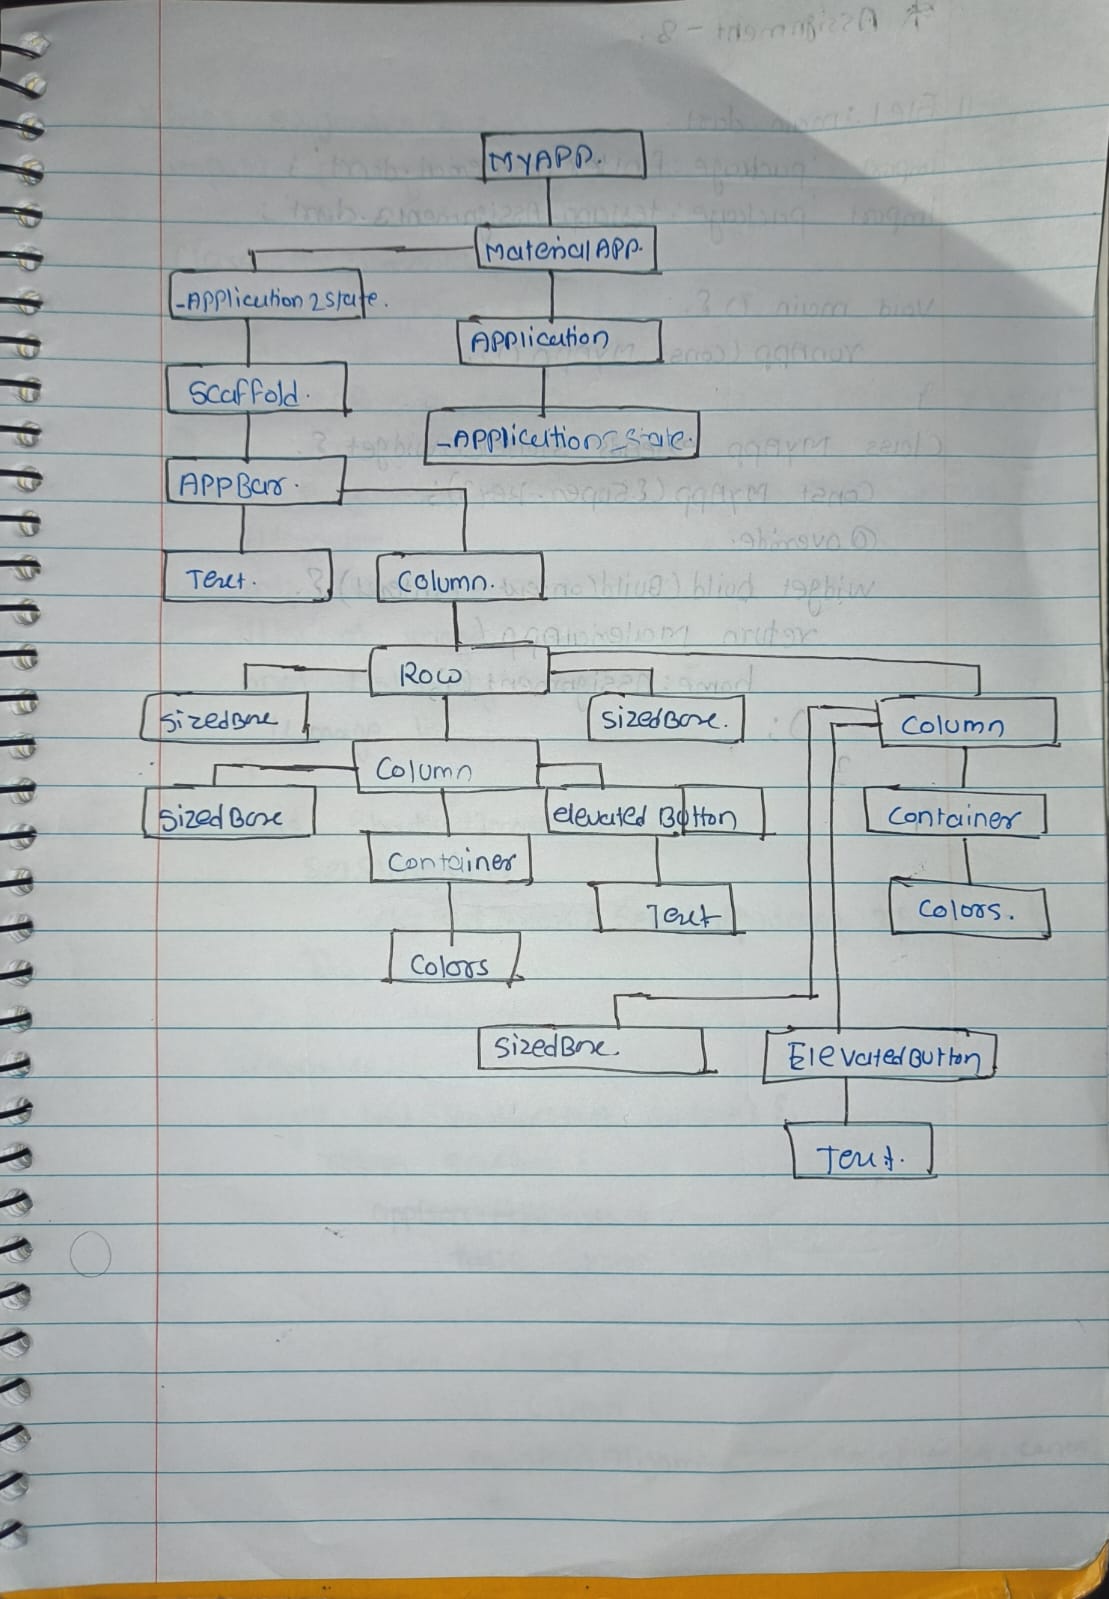 MYAPP.
MaterialAPP.
-APPlication2state.
APPlication
Scaffold.
-APPlication2state.
APPBar.
Text.
Column.
Row
SizedBox
SizedBox.
Column
Column
SizedBox
elevated Button
Container
Container
Text
Colors.
Colors
SizedBox.
ElevatedButton
Text.